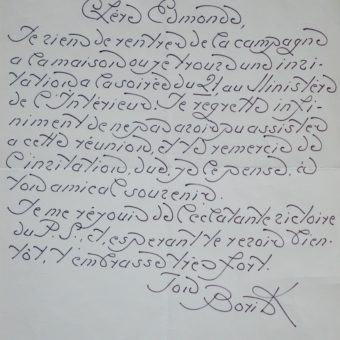 Chère Edmonde,
Je viens de rentrer de la campagne
à la maison où je trouve une invi-
tation à la soirée du 21, au Ministère
de l'Intérieur. Je regrette infi-
niment de ne pas avoir pu assister
à cette réunion, et te remercie de
l'invitation, due, je le pense, à
ton amical souvenir.
Je me réjouis de l'éclatante victoire
du P.S., et, espérant te revoir bien-
tôt, t'embrasse très fort.
Ton Boris K